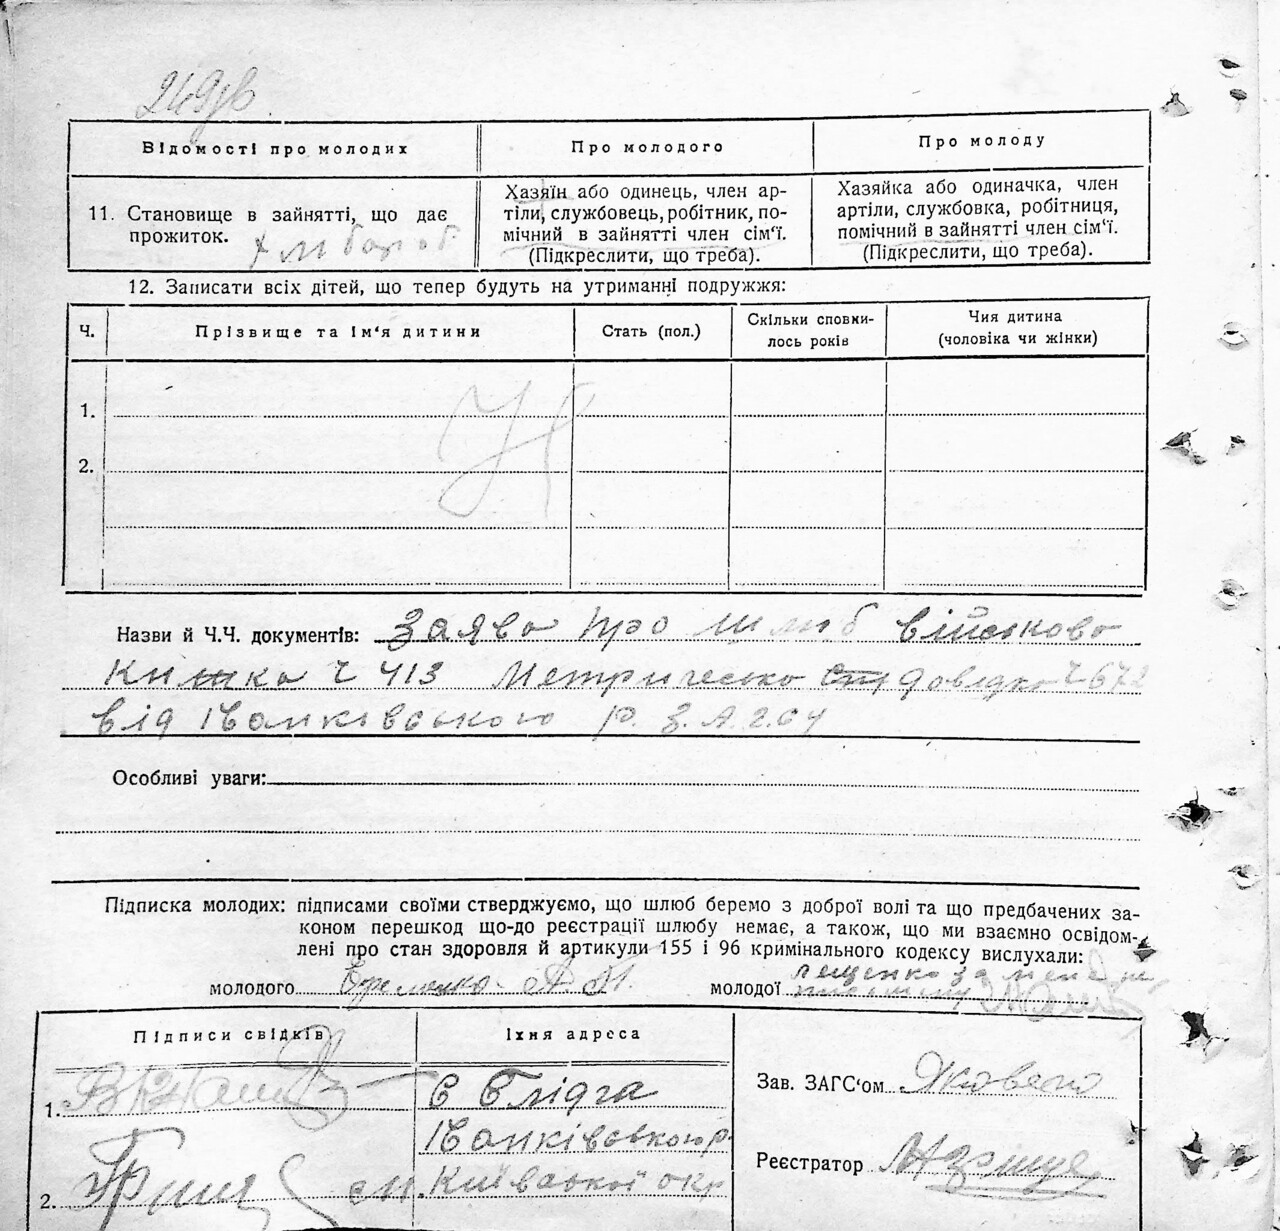 249зв.
Відомості про молодих
Про молодого
Про молоду
11. Становище в зайнятті, що дає
прожиток.
Хазяїн або одинець, член ар-
тіли, службовець, робітник, по-
мічний в зайнятті член сім'ї.
(Підкреслити, що треба).
Хазяйка або одиначка, член
артіли, службовка, робітниця,
помічний в зайнятті член сім'ї.
(Підкреслити, що треба).
12. Записати всіх дітей, що тепер будуть на утриманні подружжя:
Ч.
Прізвище та ім'я дитини
Стать (пол.)
Скільки сповни-
лось років
Чия дитина
(чоловіка чи жінки)
1.
2.
Назви й Ч.Ч. документів: Заява про шлюб військова
книжка Ч 413 Метрическа довідка Ч 672
від Іванківською Р. З.А.Г.СУ
Особливі уваги:
Підписка молодих: підписами своїми стверджуємо, що шлюб беремо з доброї волі та що предбачених за-
коном перешкод що-до реєстрації шлюбу немає, а також, що ми взаємно освідом-
лені про стан здоровля й артикули 155 і 96 кримінального кодексу вислухали:
молодого
молодої
Підписи свідків
Їхня адреса
1.
с Блідга
Іванківською р.
2.
Київської окр
Зав. ЗАГС'ом
Реєстратор